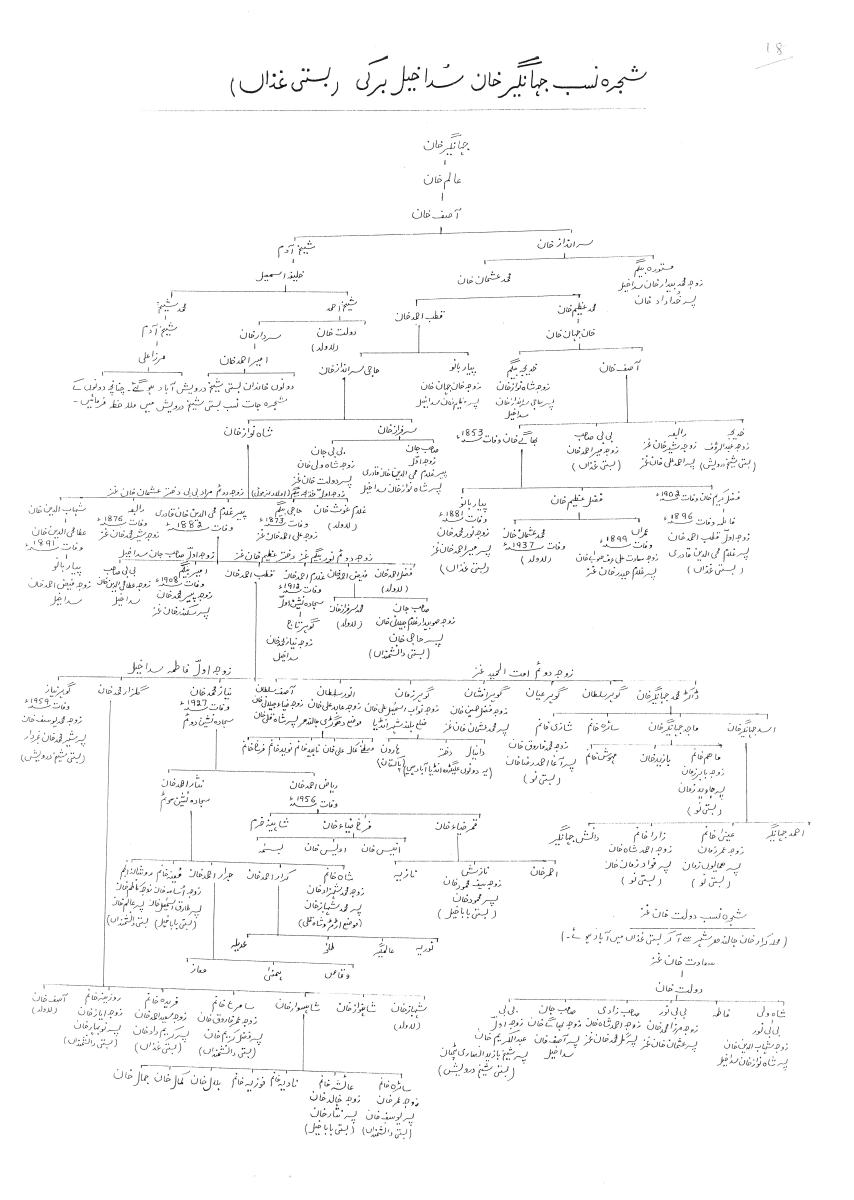 18
شجرہ نسب جہانگیر خان سدا خیل برکی (بستی غذاں)
جہانگیر خان
عالم خان
آصف خان
سرانداز خان
شیخ آدم
مستورہ بیگم
زوجہ محمد بیدار خان سداخیل
پسر خداداد خان
محمد عثمان خان
خلیفہ اسمٰعیل
محمد عظیم خان
قطب احمد خان
شیخ احمد
محمد شیخ
خان جہان خان
دولت خان
(لاولد)
سردار خان
شیخ آدم
آصف خان
خدیجہ بیگم
زوجہ شاہ نواز خان
پسر حاجی سرانداز خان
سداخیل
پیار بانو
زوجہ خان جہان خان
پسر محمد عظیم خان سداخیل
حاجی سرانداز خان
امیر احمد خان
مرزا علی
دونوں خاندان بستی شیخ درویش آباد ہو گئے۔ چنانچہ دونوں کے
شجرہ جات نسب بستی شیخ درویش میں ملاحظہ فرمائیں۔
خدیجہ
زوجہ عبدالرؤف
(بستی شیخ درویش)
رابعہ
زوجہ شیر خان غز
پسر احمد علی خان غز
بی بی صاحب
زوجہ میر احمد خان
(بستی غذاں)
بھاگے خان وفات 1853ء
سرفراز خان
شاہ نواز خان
صاحب جان
زوجہ اول
پیر غلام محی الدین خان قادری
پسر شاہ نواز خان سداخیل
بی بی جان
زوجہ شاہ ولی خان
پسر دولت خان غز
فضل کریم خان وفات 1902ء
فاطمہ وفات 1896ء
زوجہ اول قطب احمد خان
پسر غلام محی الدین قادری
(بستی غذاں)
فضل عظیم خان
پیار بانو
وفات 1881ء
زوجہ نور محمد خان
پسر میر احمد خان غز
(بستی غذاں)
عمراں
وفات 1899ء
پسر غلام حیدر خان غز
محمد عثمان خان
وفات 1937ء
(لاولد)
زوجہ دوئم مراد بی بی دختر عثمان خان غز
غلام غوث خان
(لاولد)
حاجی بیگم
وفات 1873ء
زوجہ علی احمد خان غز
پیر غلام محی الدین خان قادری
وفات 1882ء
رابعہ
وفات 1876ء
زوجہ شیر محمد خان غز
شہاب الدین خان
عطا محی الدین خان
وفات 1891ء
پیار بانو
زوجہ فیض احمد خان
سداخیل
زوجہ دوئم نور بیگم غز دختر عظیم خان غز
زوجہ اول صاحب جان سداخیل
فضل احمد خان
(لاولد)
فیض احمد خان
غلام احمد خان
وفات 1912ء
سجادہ نشین اول
گوہر تاج
زوجہ نیاز محمد خان
سداخیل
قطب احمد خان
امیر بیگم
وفات 1908ء
زوجہ پیر محمد خان
پسر سکندر خان غز
بی بی صاحب
زوجہ عطا محی الدین خان
سداخیل
صاحب جان
زوجہ صوبیدار غلام جیلانی خان
پسر حاجی خان
(بستی دانشمنداں)
محمد سرفراز خان
(لاولد)
زوجہ دوئم امت الحمید غز
زوجہ اول فاطمہ سداخیل
ڈاکٹر محمد جہانگیر خان
گوہر سلطان
گوہر عیان
گوہر افشان
زوجہ فضل حسین خان
پسر محمد عثمان خان غز
گوہر زمان
زوجہ نواب اسمٰعیل علی خان
ضلع بلند شہر انڈیا
انور سلطان
زوجہ عابد علی خان
موضع دھوگڑی جالندھر
آصف سلطان
نیاز محمد خان
وفات 1927ء
سجادہ نشین دوئم
گلزار محمد خان
گوہر نیاز
وفات 1959ء
زوجہ محمد یوسف خان
(بستی شیخ درویش)
اسد جہانگیر خان
ماجد جہانگیر خان
سائرہ خانم
شازی خانم
زوجہ محمد فاروق خان
پسر آغا احمد رضا خان
(بستی نو)
ماہم خانم
زوجہ بابر زمان
پسر جاوید زمان
(بستی نو)
بازید خان
مہوش خانم
دانیال
دختر
ہارون
(یہ دونوں علیگڑھ انڈیا آباد ہیں)
(پاکستان)
نثار احمد خان
سجادہ نشین سوئم
ریاض احمد خان
وفات 1956ء
احمد جہانگیر
عینی خانم
زوجہ عمر زمان
پسر ہمایوں زمان
(بستی نو)
زارا خانم
زوجہ احمد شاہ خان
پسر فواد زمان خان
(بستی نو)
دانش جہانگیر
قمر ضیاء خان
فرخ ضیاء خان
شاہینہ خرم
احمر خان
نازش
زوجہ سیف محمود خان
پسر محمود خان
(بستی بابا خیل)
نازیہ
انیس خان
اویس خان
بسمہ
شاہ خانم
زوجہ محمد شہزاد خان
پسر محمد شہباز خان
کرار احمد خان
جرار احمد خان
فوزیہ خانم
زوجہ اسامہ خان
پسر طارق اسمٰعیل خان
(بستی بابا خیل)
روشانہ انجم
زوجہ کاظم خان
پسر عالم خان
(بستی دانشمنداں)
نوریہ
عالمگیر
طلحٰہ
عدیلہ
وقاص
یمنیٰ
معاذ
شجرہ نسب دولت خان غز
(محمد کرار خان جالندھر شہر سے آ کر بستی غذاں میں آباد ہوئے۔)
سعادت خان غز
دولت خان
شاہ ولی
بی بی نور
زوجہ شہاب الدین خان
پسر شاہ نواز خان سداخیل
فاطمہ
بی بی نور
زوجہ مرزا محی خان
پسر عثمان خان غز
صاحب زادی
زوجہ احمد شاہ خان
پسر گل محمد خان غز
صاحب جان
زوجہ بھاگے خان
پسر آصف خان
سداخیل
بی بی
زوجہ اول
عبدالکریم خان
پسر شیخ بازید انصاری پٹھان
(بستی شیخ درویش)
شہباز خان
(لاولد)
شاہنواز خان
شاہسوار خان
سامرع خانم
زوجہ عمر فاروق خان
پسر فضل کریم خان
(بستی دانشمنداں)
فریدہ خانم
زوجہ سعید احمد خان
پسر کریم داد خان
(بستی غذاں)
روزینہ خانم
زوجہ ایاز خان
پسر نوبہار خان
(بستی دانشمنداں)
آصف خان
(لاولد)
سائرہ خانم
زوجہ عمر خان
پسر یوسف خان
(بستی دانشمنداں)
عائشہ خانم
زوجہ خالد خان
پسر نثار خان
(بستی بابا خیل)
نادیہ خانم
فوزیہ خانم
بلال خان
کمال خان
جمال خان